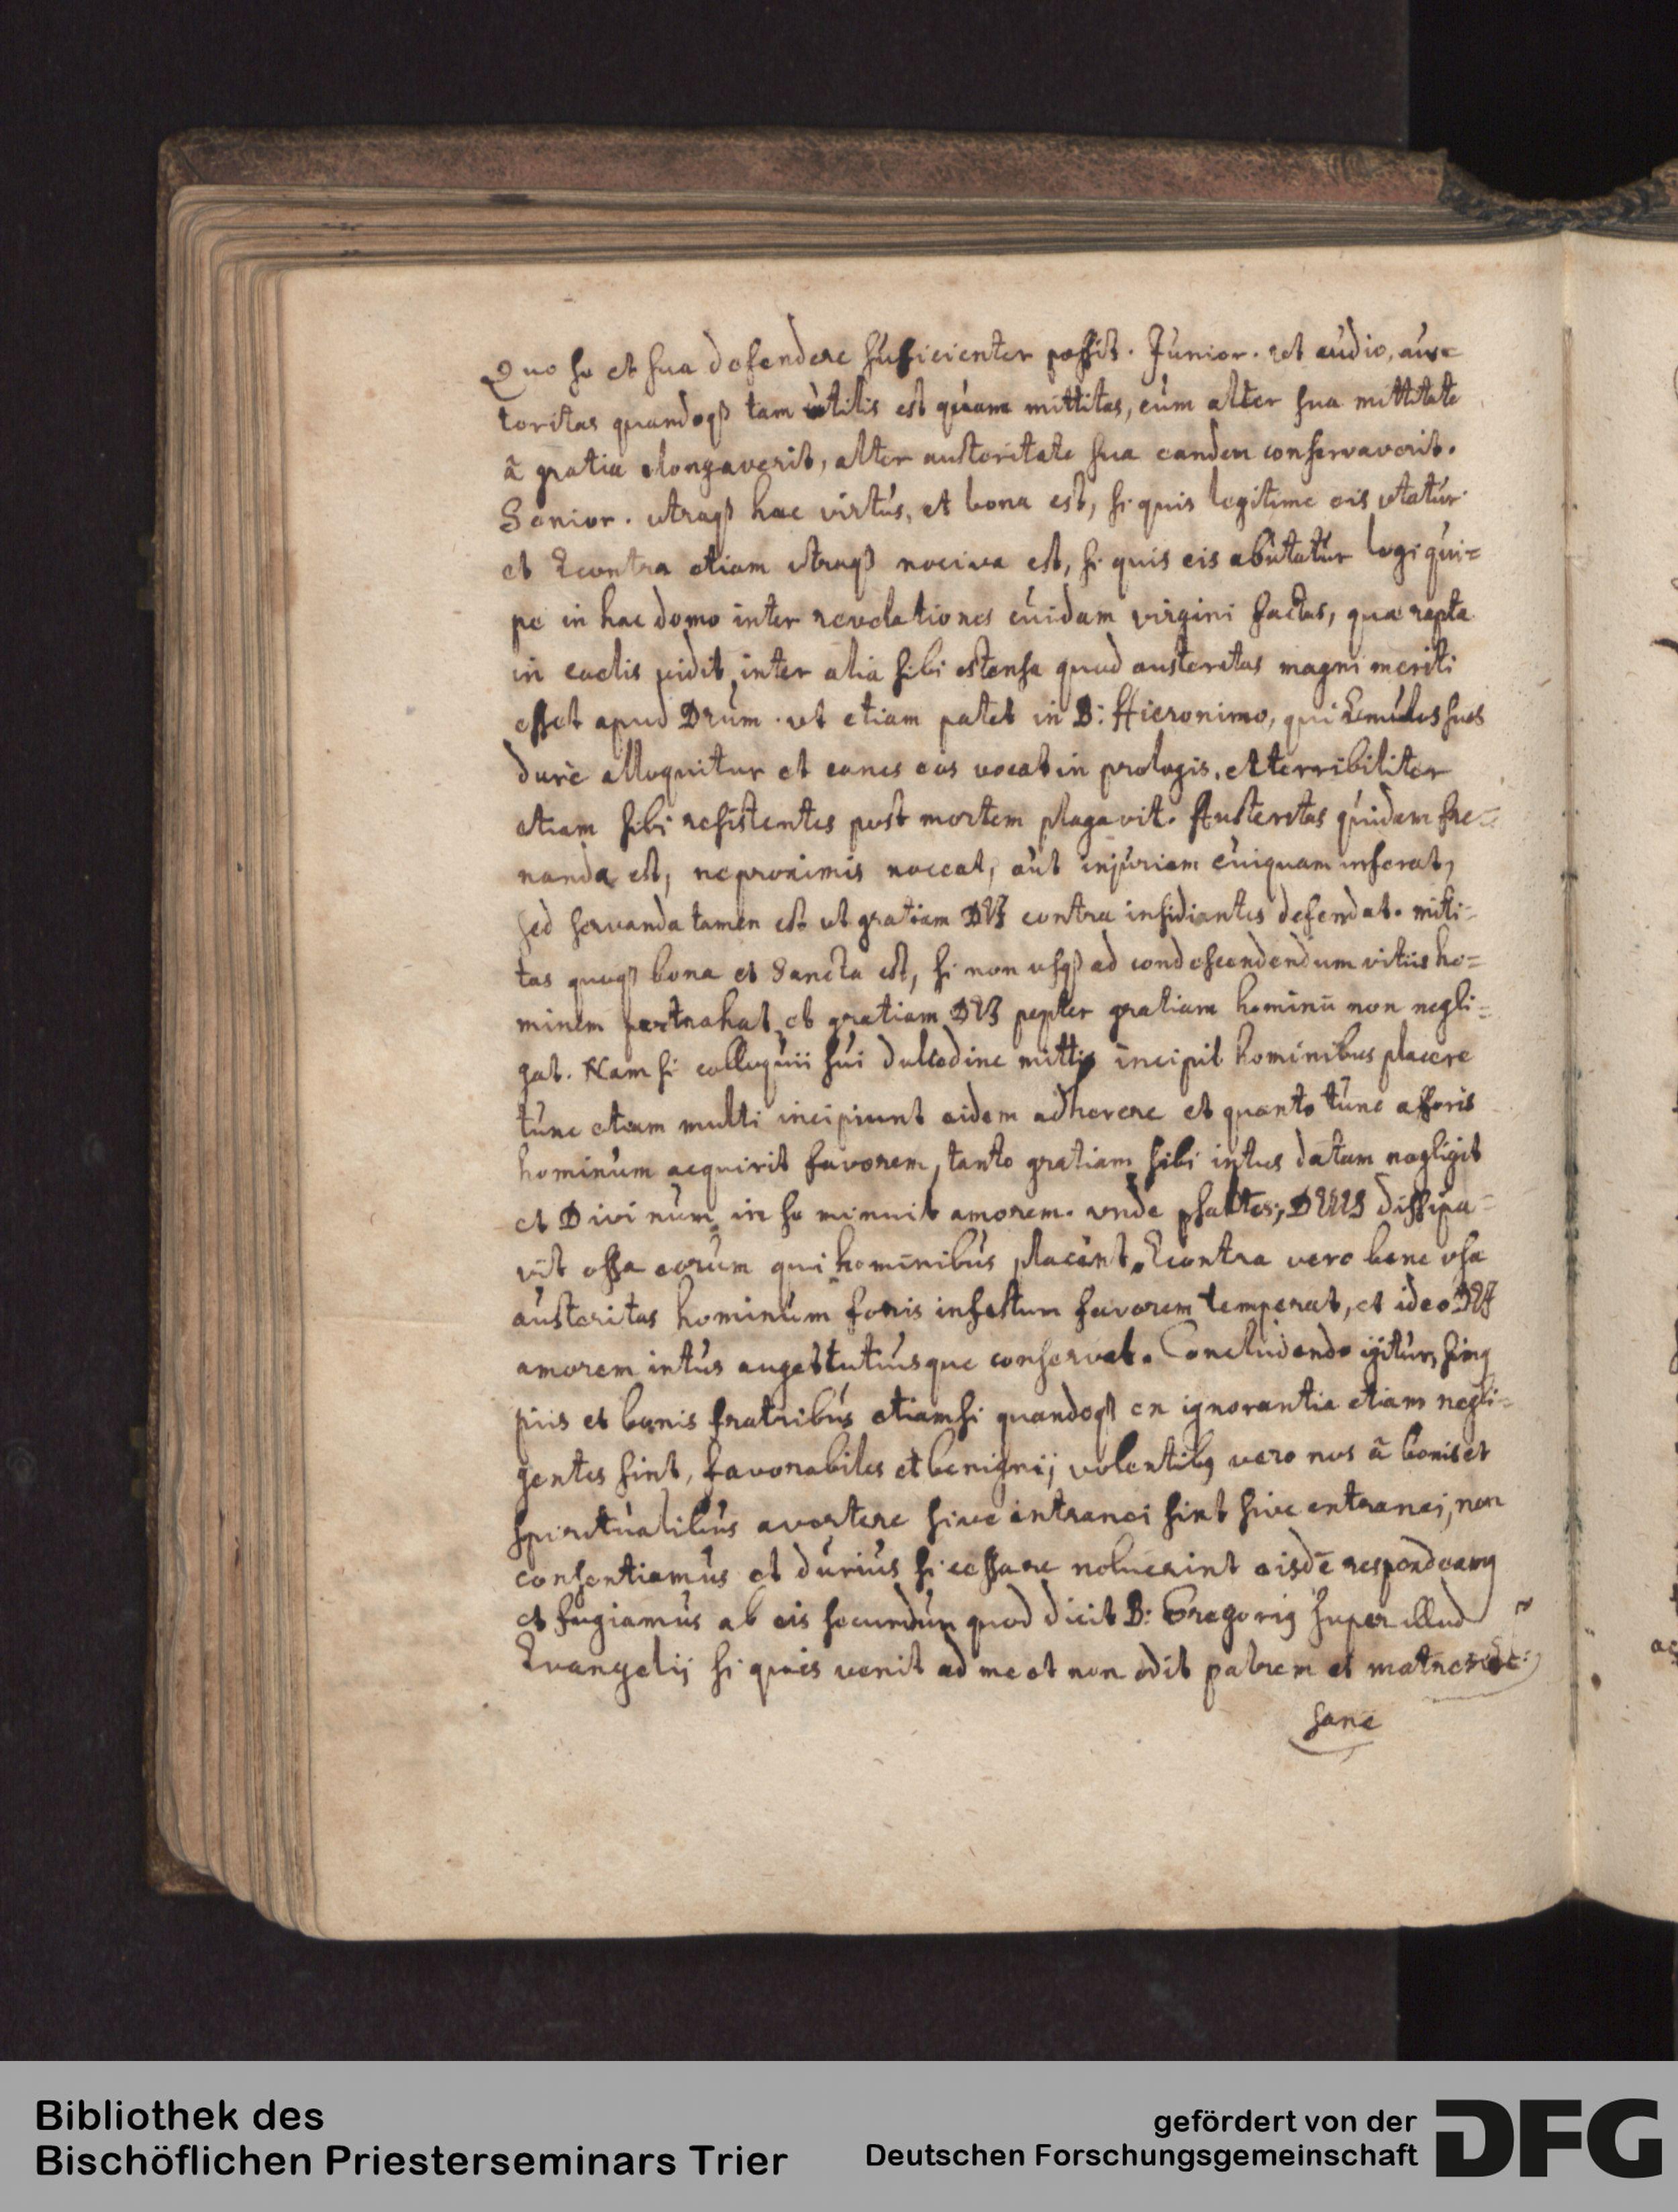 Quo se et sua defendere sufficienter possit. Junior. ut audio, aus=
toritas quandoqꝫ tam utilis est quam mittitas, cum alter sua mittitate
à gratia elongaverit, alter austoritate sua eandem conservaverit.
Senior. utraqꝫ haec virtus, et bona est, si quis legitime eis utatur
et Econtra etiam utraqꝫ nociva est, si quis eis abutatur legi qui=
pe in hac domo inter revelationes cuidam virgini factas, quae rapta
in caelis vidit, inter alia sibi ostensa quod austeritas magni meriti
esset apud Deum. ut etiam patet in B: Hieronimo, qui Emulos suos
dure alloquitur et canes eos vocat in prologis, et terribiliter
etiam sibi resistentes post mortem plagavit. Austeritas quidem fre=
nanda est, ne proximis noceat, aut injuriam cuiquam inferat,
sed servanda tamen est ut gratiam DEI contra insidiantes defendat. mitti=
tas quoqꝫ bona et Sancta est, si non usqꝫ ad condescendendum vitiis ho=
minem pertrahat, et gratiam DEI propter gratiam hominū non negli=
gat. Nam si colloquii sui dulcedine mittis incipit hominibus placere
tunc etiam multi incipiunt eidem adherere et quanto tunc afforis
hominum acquirit favorem, tanto gratiam sibi intus datam negligit
et Divinum in se minuit amorem. unde psaltes; DEUS dissipa=
vit ossa eorum qui hominibus placent. Econtra vero bene usa
austeritas hominum foris infestum favorem temperat, et ideo DEI
amorem intus auget tutiusque conservat. Concludendo igitur, simꝰ
piis et bonis fratribus etiamsi quandoqꝫ ex ignorantia etiam negli=
gentes sint, favorabiles et benigni; volentibꝰ vero nos à bonis et
spiritualibus avertere sive intranei sint sive extranei, non
consentiamus et durius si cessare noluerint eisdē respondeamꝰ
et fugiamus ab eis secundum quod dicit B: Gregoriꝰ super illud
Evangelij si quis venit ad me et non odit patrem et matrem etc:
sane
Bibliothek des
Bischöflichen Priesterseminars Trier
gefördert von der
Deutschen Forschungsgemeinschaft
DFG